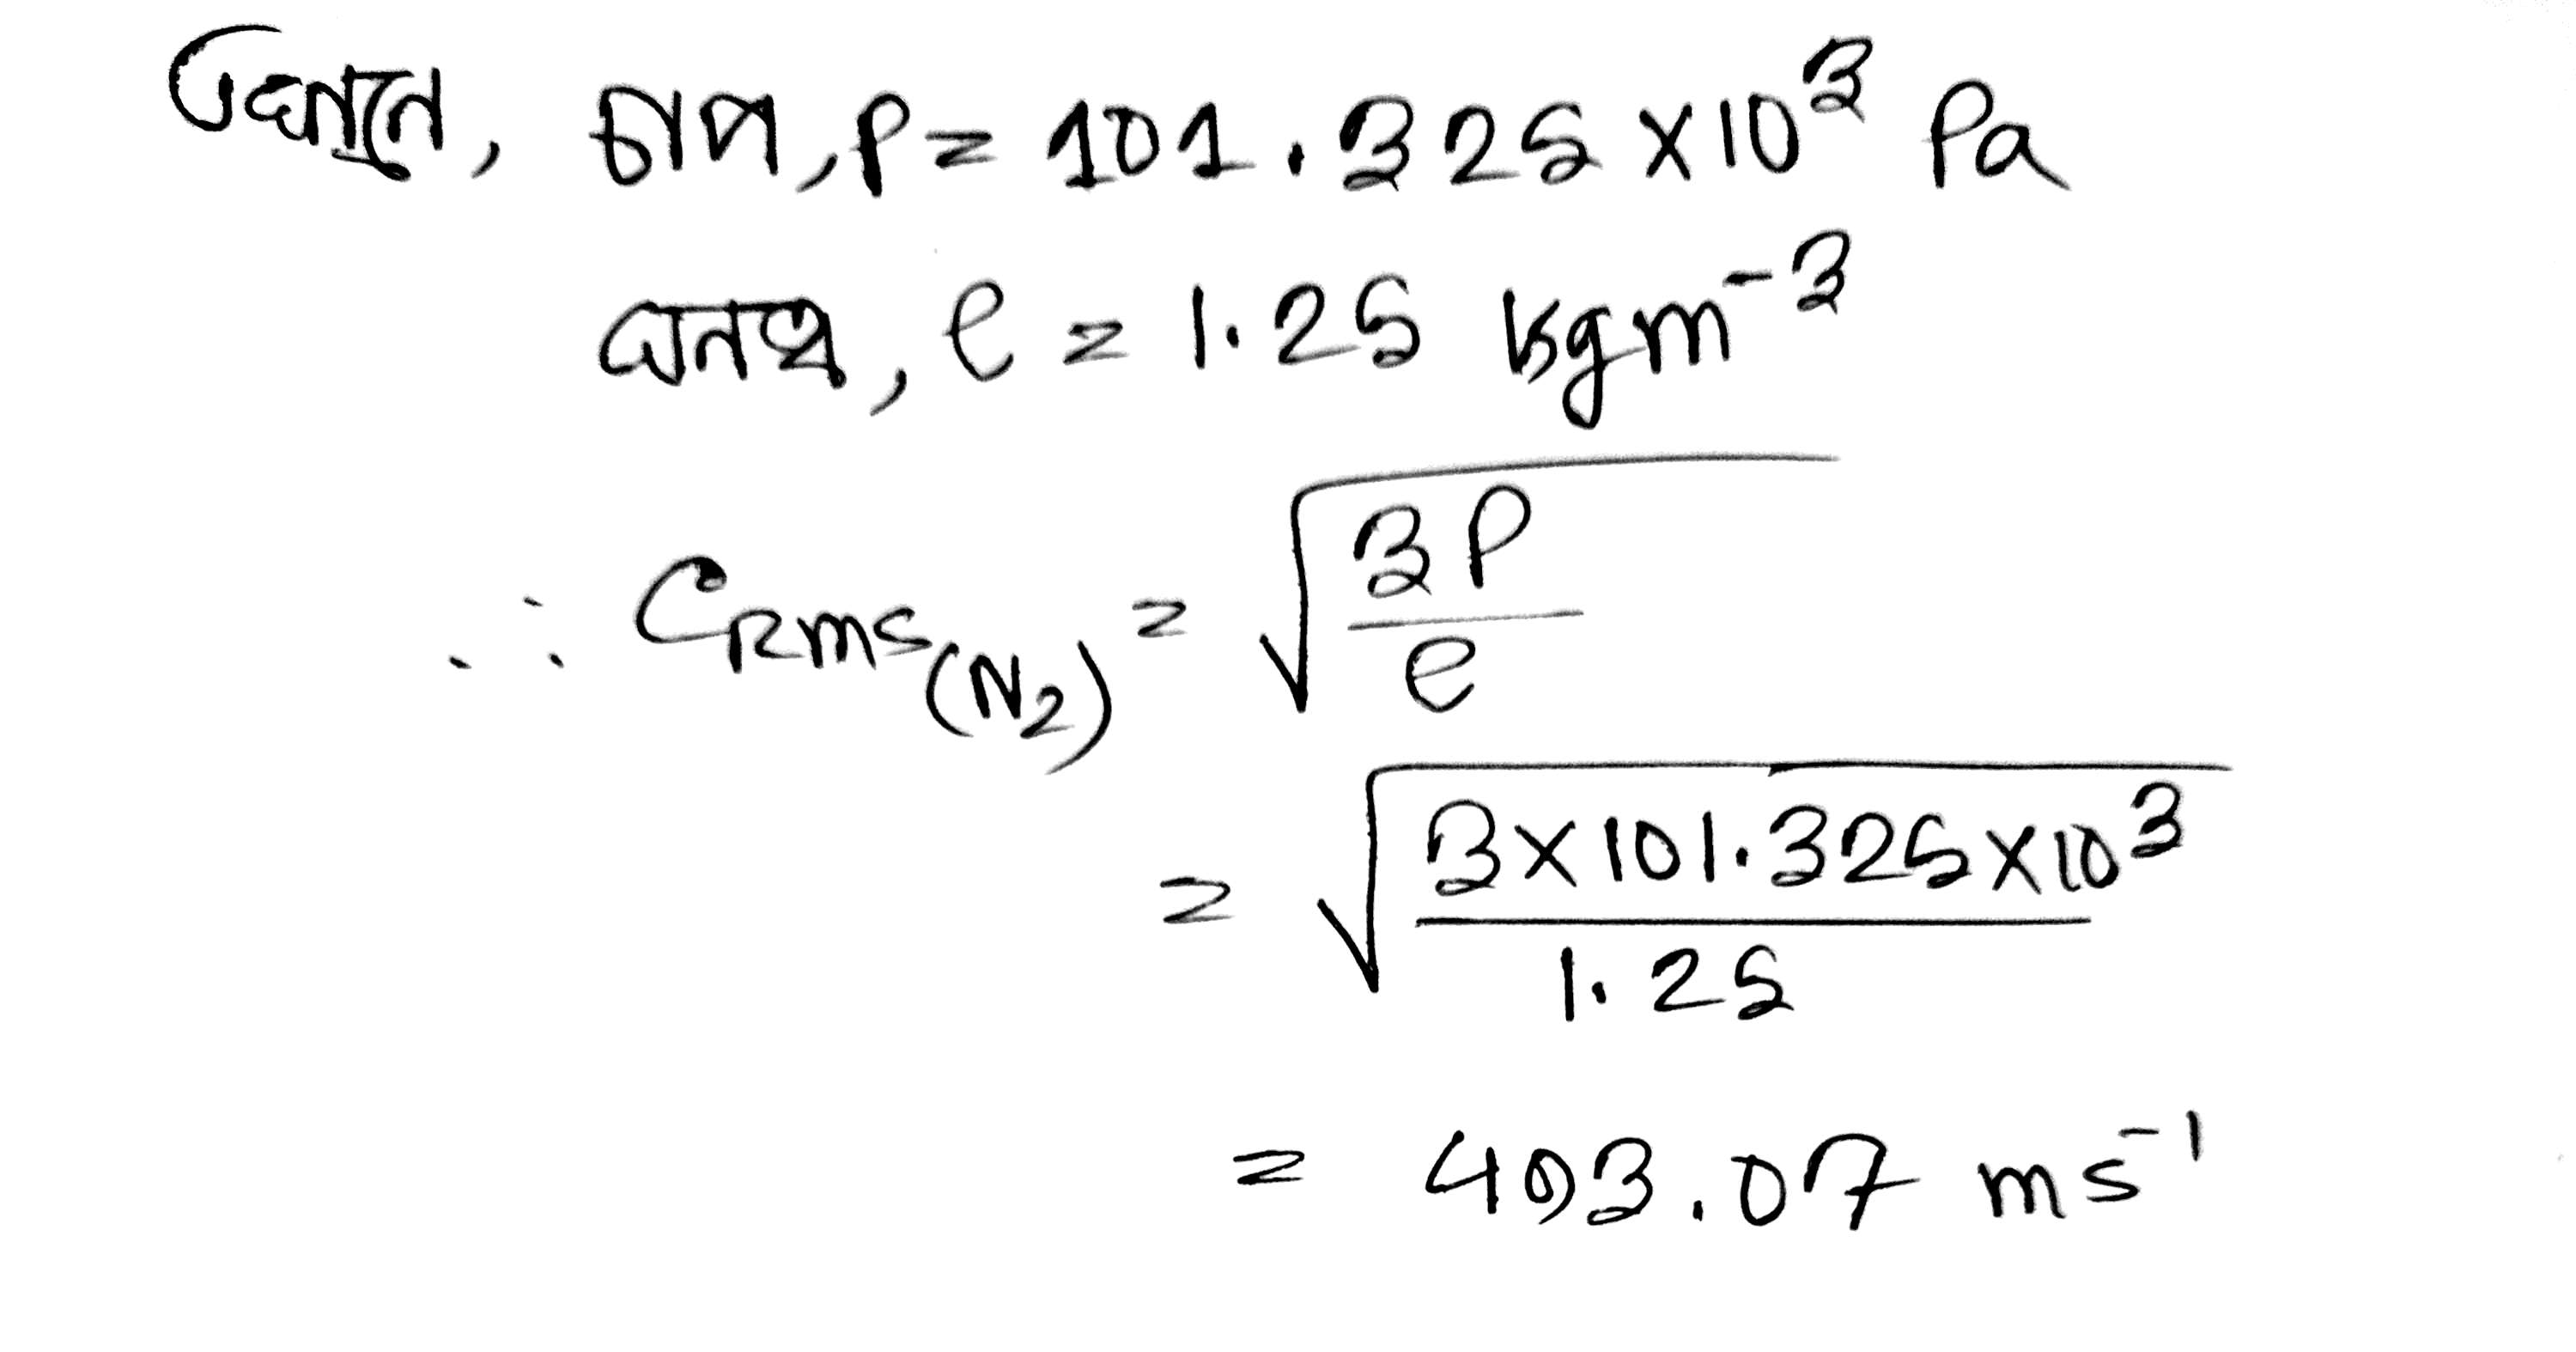 এখানে, চাপ, P = 101.325 × 10³ Pa
ঘনত্ব, ρ = 1.25 kgm⁻³
∴ C_RMS(N₂) = √(3P/ρ)
= √(3×101.325×10³/1.25)
= 493.07 ms⁻¹